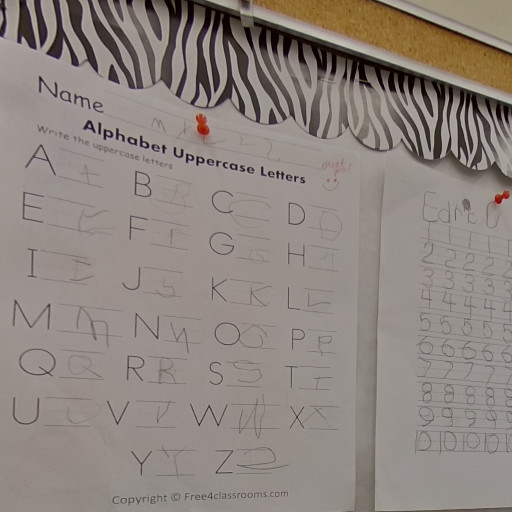 Name
Alphabet Uppercase Letters
Write the uppercase letters
A A B B C C D D
E E F F G G H H
I I J J K K L L
M M N N O O P P
Q Q R R S S T T
U U V V W W X X
Y Y Z Z
Copyright © Free4classrooms.com
1 1 1 1
2 2 2 2 2
3 3 3 3 3
4 4 4 4 4
5 5 5 5 5
6 6 6 6 6
7 7 7 7 7
8 8 8 8 8
9 9 9 9 9
10 10 10 10 1